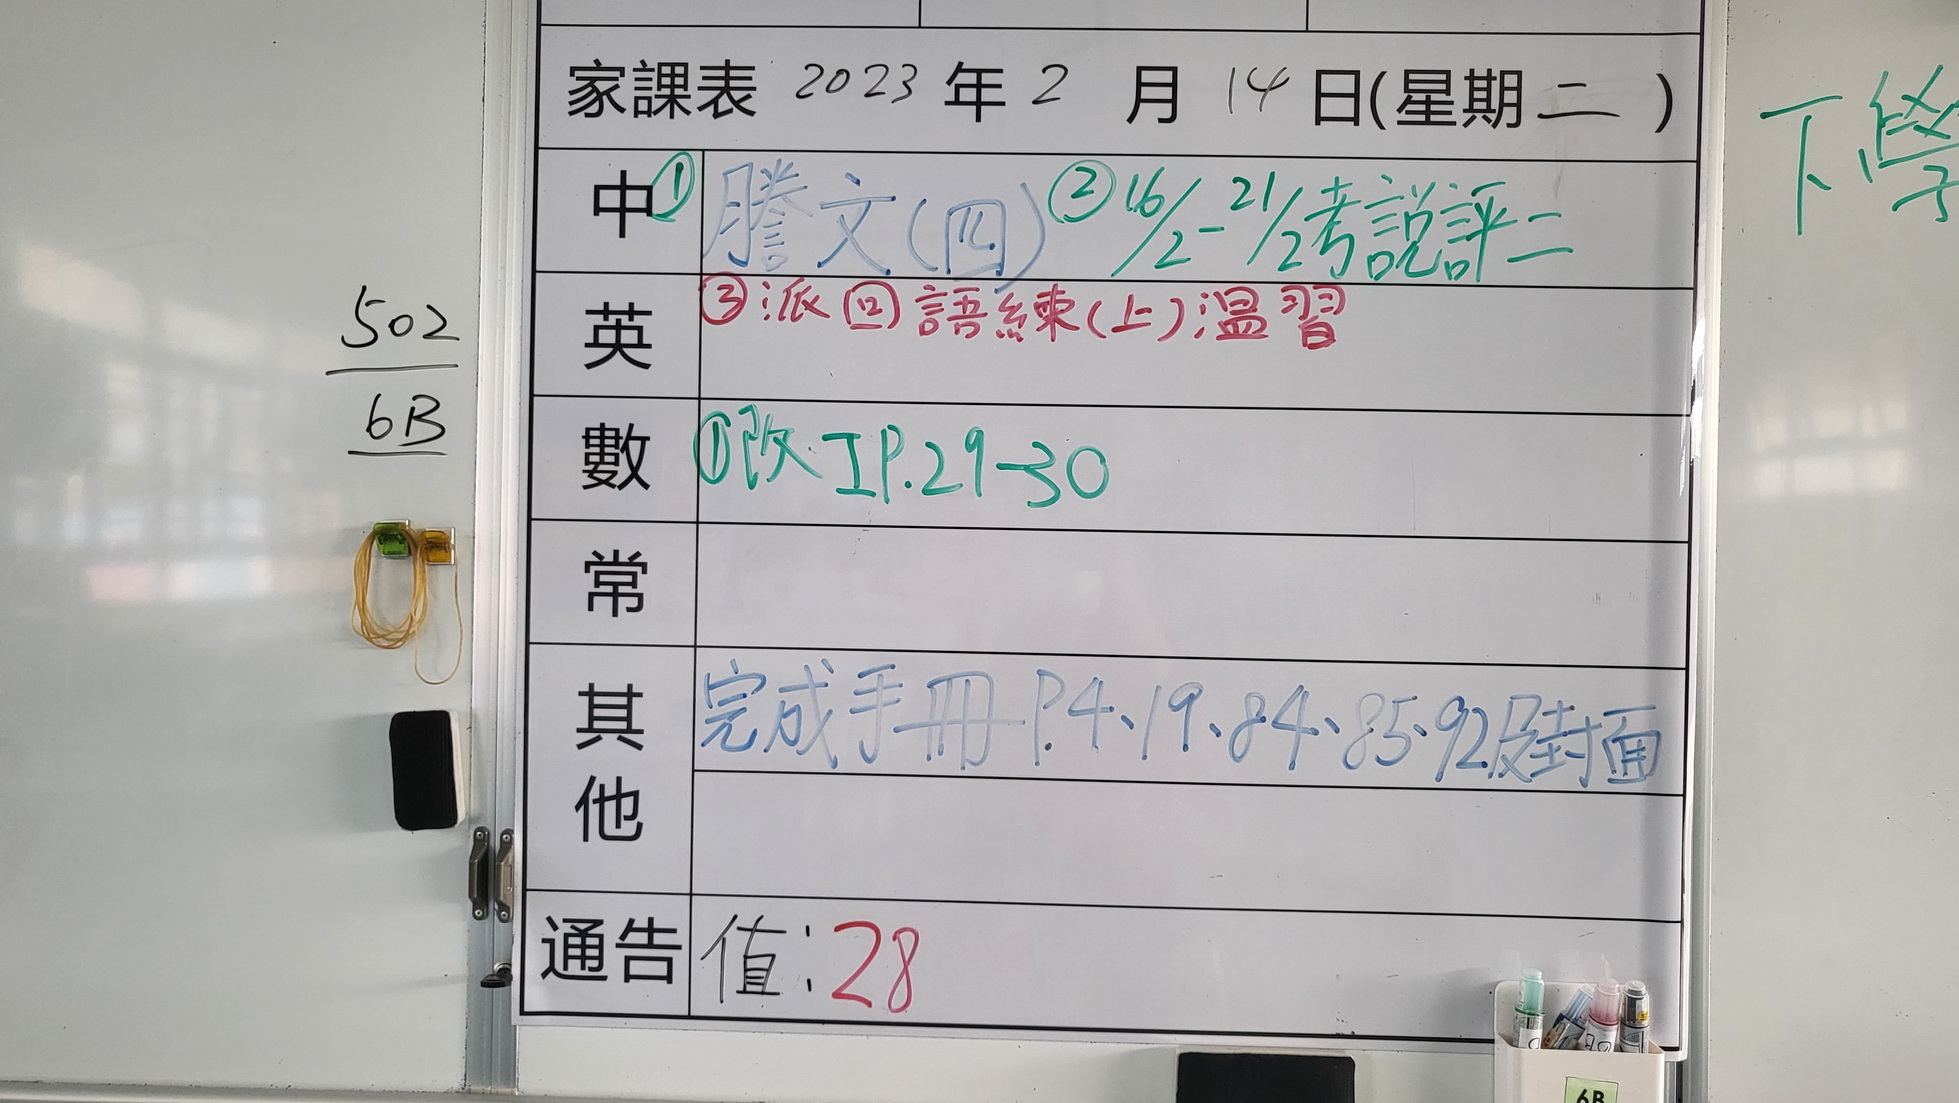 家課表 2023 年 2 月 14 日(星期二)
中 ①謄文(四) ②16/2-21/2考說評二
英 ③派回語練(上)溫習
數 ①改 IP.29-30
常
其他 完成手冊 P.4、19、84、85、92及封面
通告 值:28
502
6B
下學
6B